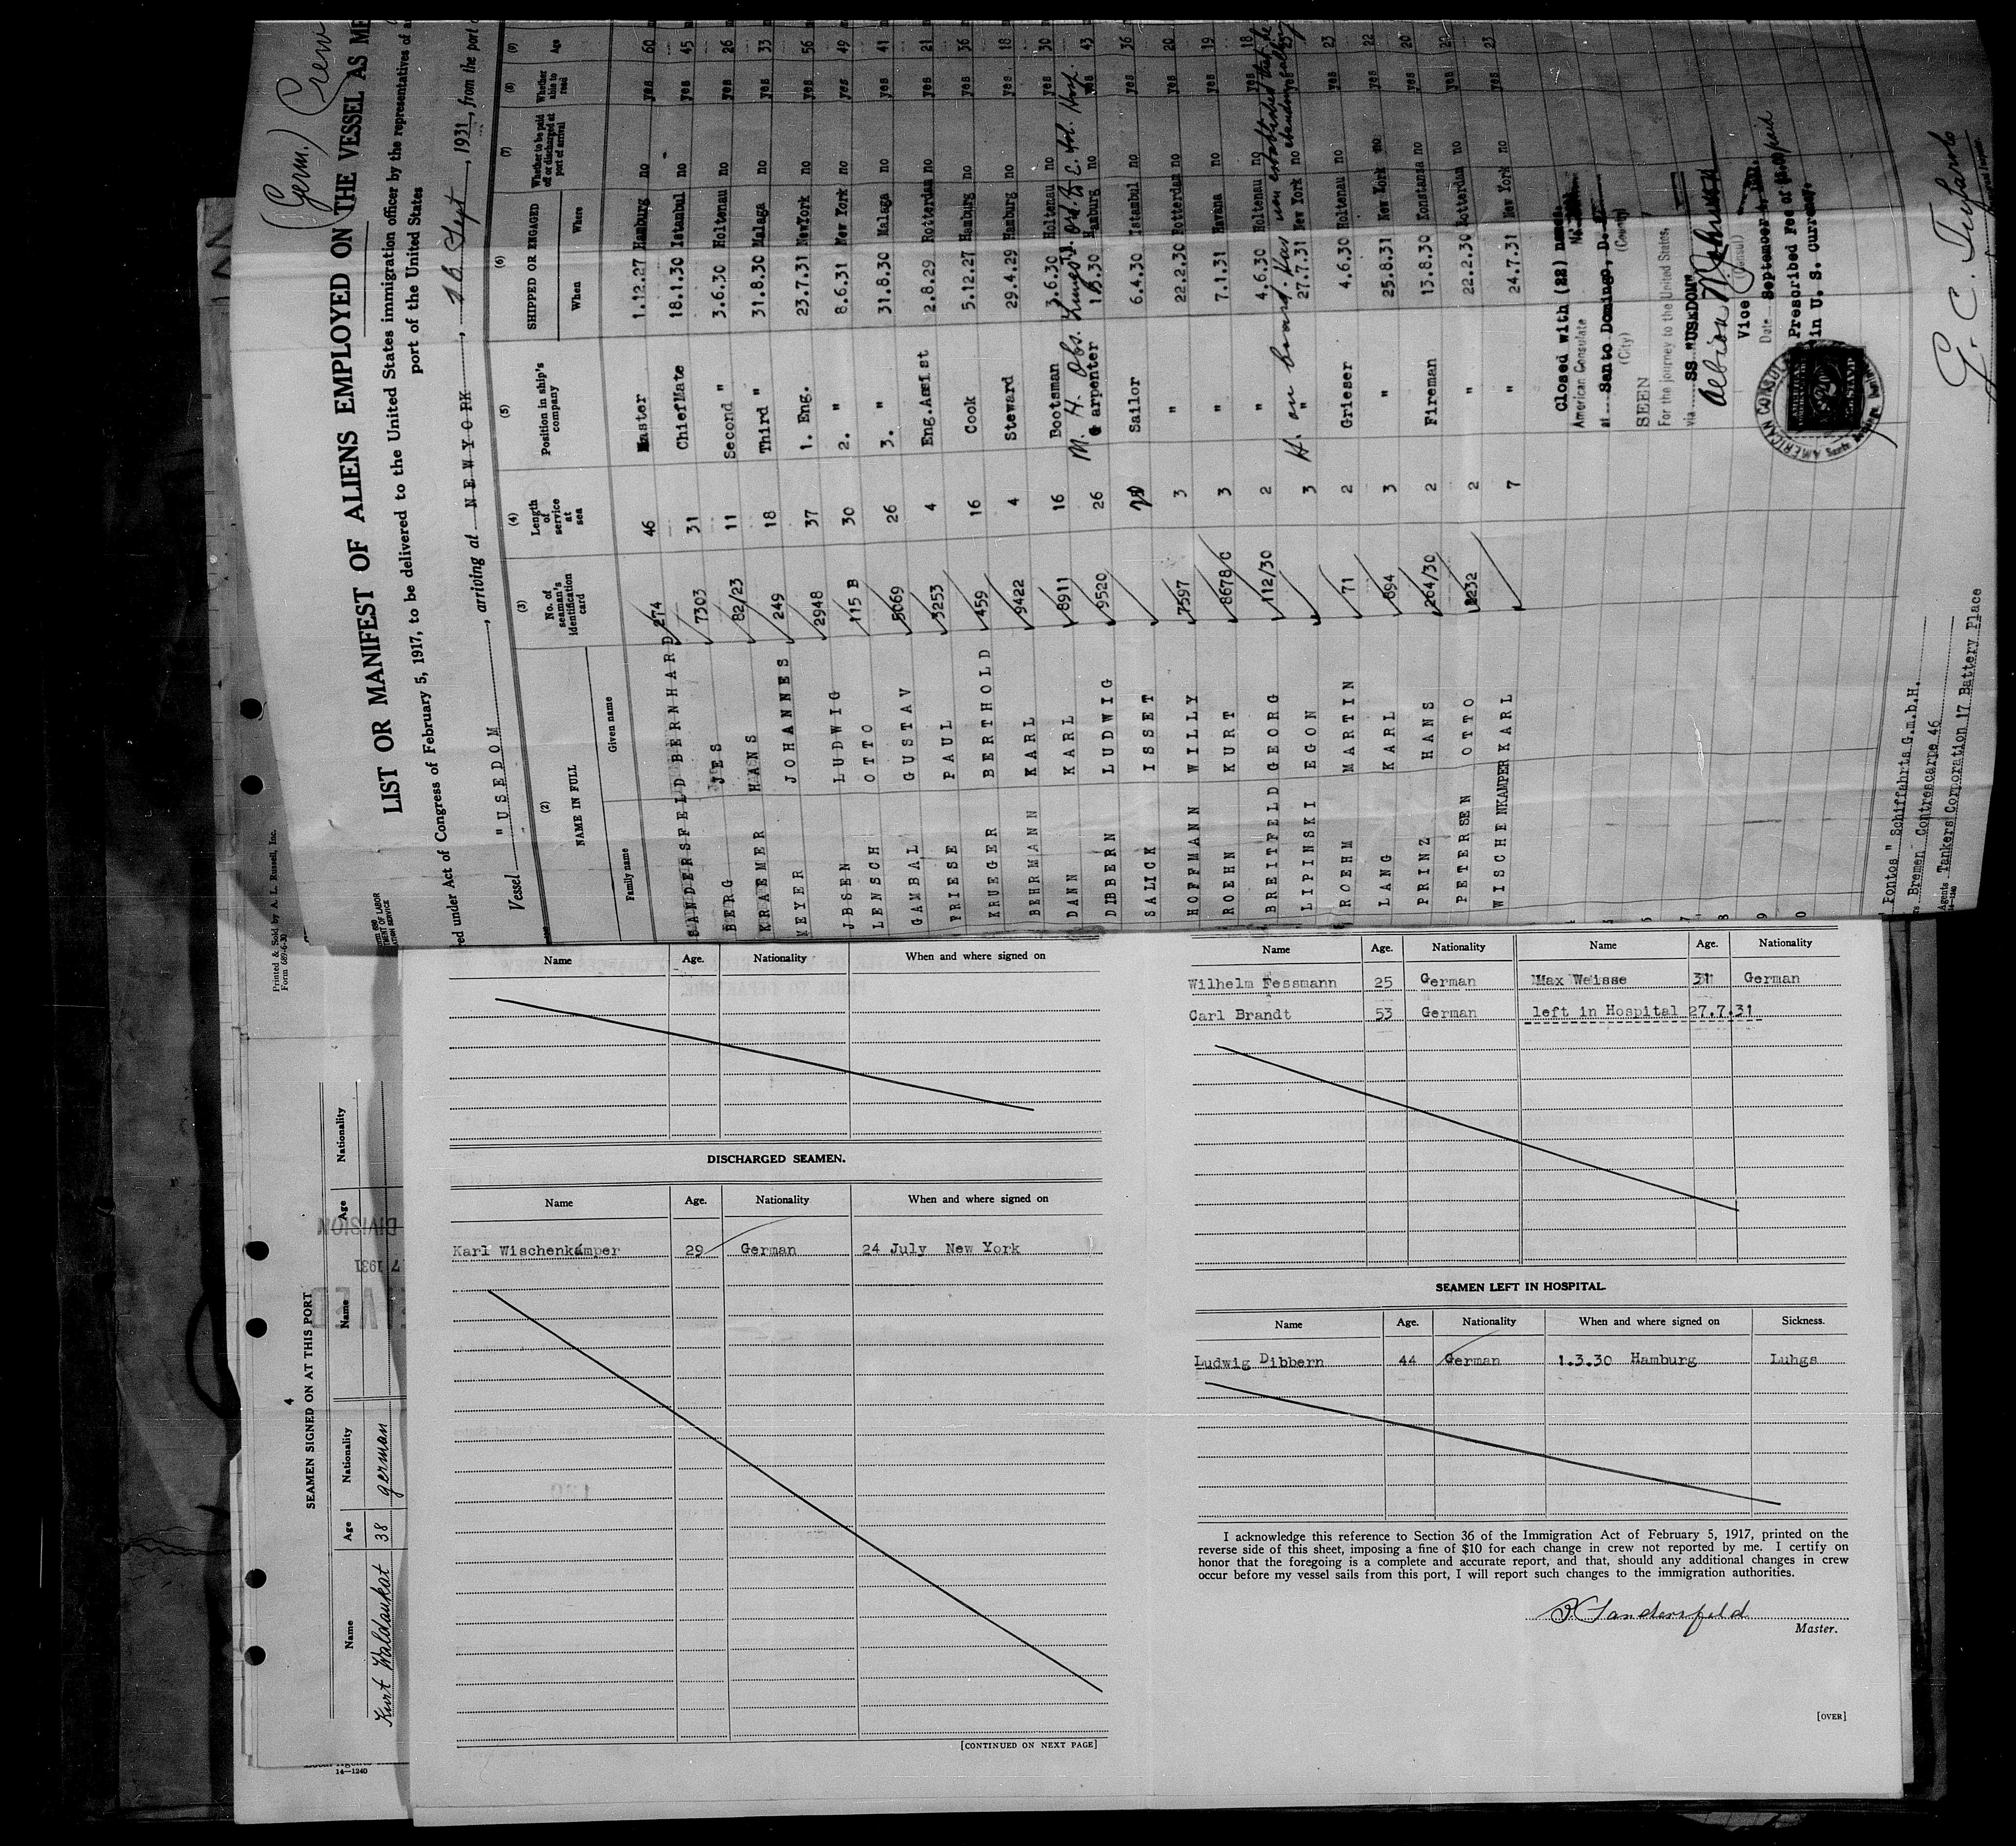 (Germ.) Crew
LIST OR MANIFEST OF ALIENS EMPLOYED ON THE VESSEL AS
red under Act of Congress of February 5, 1917, to be delivered to the United States immigration officer by the representatives of
port of the United States
Vessel "USEDOM", arriving at NEWYORK, Sept, 1931, from the port
(2) (3) (4) (5) (6) (7) (8) (9)
NAME IN FULL No. of seaman's identification card Length of service at sea Position in ship's company SHIPPED OR ENGAGED Whether to be paid off or discharged at port of arrival Whether able to read Age
Family name Given name When Where
SANDERSFELD BERNHARD 274 46 Master 1.12.27 Hamburg no yes 60
BERG JES 7303 31 ChiefMate 18.1.30 Istanbul no yes 45
KRAEMER HANS 82/23 11 Second " 3.6.30 Holtenau no yes 26
MEYER JOHANNES 249 18 Third " 31.8.30 Malaga no yes 33
JBSEN LUDWIG 2948 37 1. Eng. 23.7.31 NewYork no yes 56
LENSCH OTTO 115 B 30 2. " 8.6.31 New York no yes 49
GAMBAL GUSTAV 5069 26 3. " 31.8.30 Malaga no yes 41
PRIESE PAUL 3253 4 Eng.Assist 2.8.29 Rotterdam no yes 21
KRUEGER BERTHOLD 459 16 Cook 5.12.27 Hamburg no yes 36
BEHRMANN KARL 9422 4 Steward 29.4.29 Hamburg no yes 18
DANN KARL 8911 16 Bootsman 3.6.30 Holtenau no yes 30
M. H. Obs. Hosp.
DIBBERN LUDWIG 9520 26 Carpenter 1.3.30 Hamburg no yes 43
SALICK ISSET Sailor 6.4.30 Istambul no yes 36
HOFFMANN WILLY 7597 3 " 22.2.30 Rotterdam no yes 20
ROEHN KURT 8678/C 3 " 7.1.31 Havana no yes 19
BREITFELD GEORG 112/30 2 " 4.6.30 Holtenau no yes 18
H. on board.
LIPINSKI EGON 3 " 27.7.31 New York no yes
ROEHM MARTIN 71 2 Grieser 4.6.30 Holtenau no yes 23
LANG KARL 894 3 " 25.8.31 New York no yes 22
PRINZ HANS 264/30 2 Fireman 13.8.30 Konstansa no yes 20
PETERSEN OTTO 2232 2 " 22.2.30 Rotterdam no yes
WISCHENKAMPER KARL 7 " 24.7.31 New York no yes 23
Closed with (22) names.
American Consulate
at Santo Domingo, D.
(City) (County)
SEEN
For the journey to the United States,
via SS "USEDOM"
Vice (Consul)
Date September
Prescribed Fee of paid
in U. S. Currency.
AMERICAN CONSUL
Pontos" Schiffahrts G.m.b.H.
Bremen Contrescarpe 46
Agents Tankers Corporation 17 Battery Place
14-1240
Printed & Sold by A. L. Russell, Inc.
Form 689-6-30
4
SEAMEN SIGNED ON AT THIS PORT
Name Age Nationality Name Age Nationality
Kurt Waldaukat 38 german
DIVISION
7 1931
14—1240
Name Age. Nationality When and where signed on
DISCHARGED SEAMEN.
Name Age. Nationality When and where signed on
Karl Wischenkämper 29 German 24 July New York
[CONTINUED ON NEXT PAGE]
Name Age. Nationality Name Age. Nationality
Wilhelm Fessmann 25 German Max Weisse 31 German
Carl Brandt 53 German left in Hospital 27.7.31
SEAMEN LEFT IN HOSPITAL.
Name Age. Nationality When and where signed on Sickness.
Ludwig Dibbern 44 German 1.3.30 Hamburg Luhgs
I acknowledge this reference to Section 36 of the Immigration Act of February 5, 1917, printed on the
reverse side of this sheet, imposing a fine of $10 for each change in crew not reported by me. I certify on
honor that the foregoing is a complete and accurate report, and that, should any additional changes in crew
occur before my vessel sails from this port, I will report such changes to the immigration authorities.
B. Sandersfeld
Master.
[OVER]